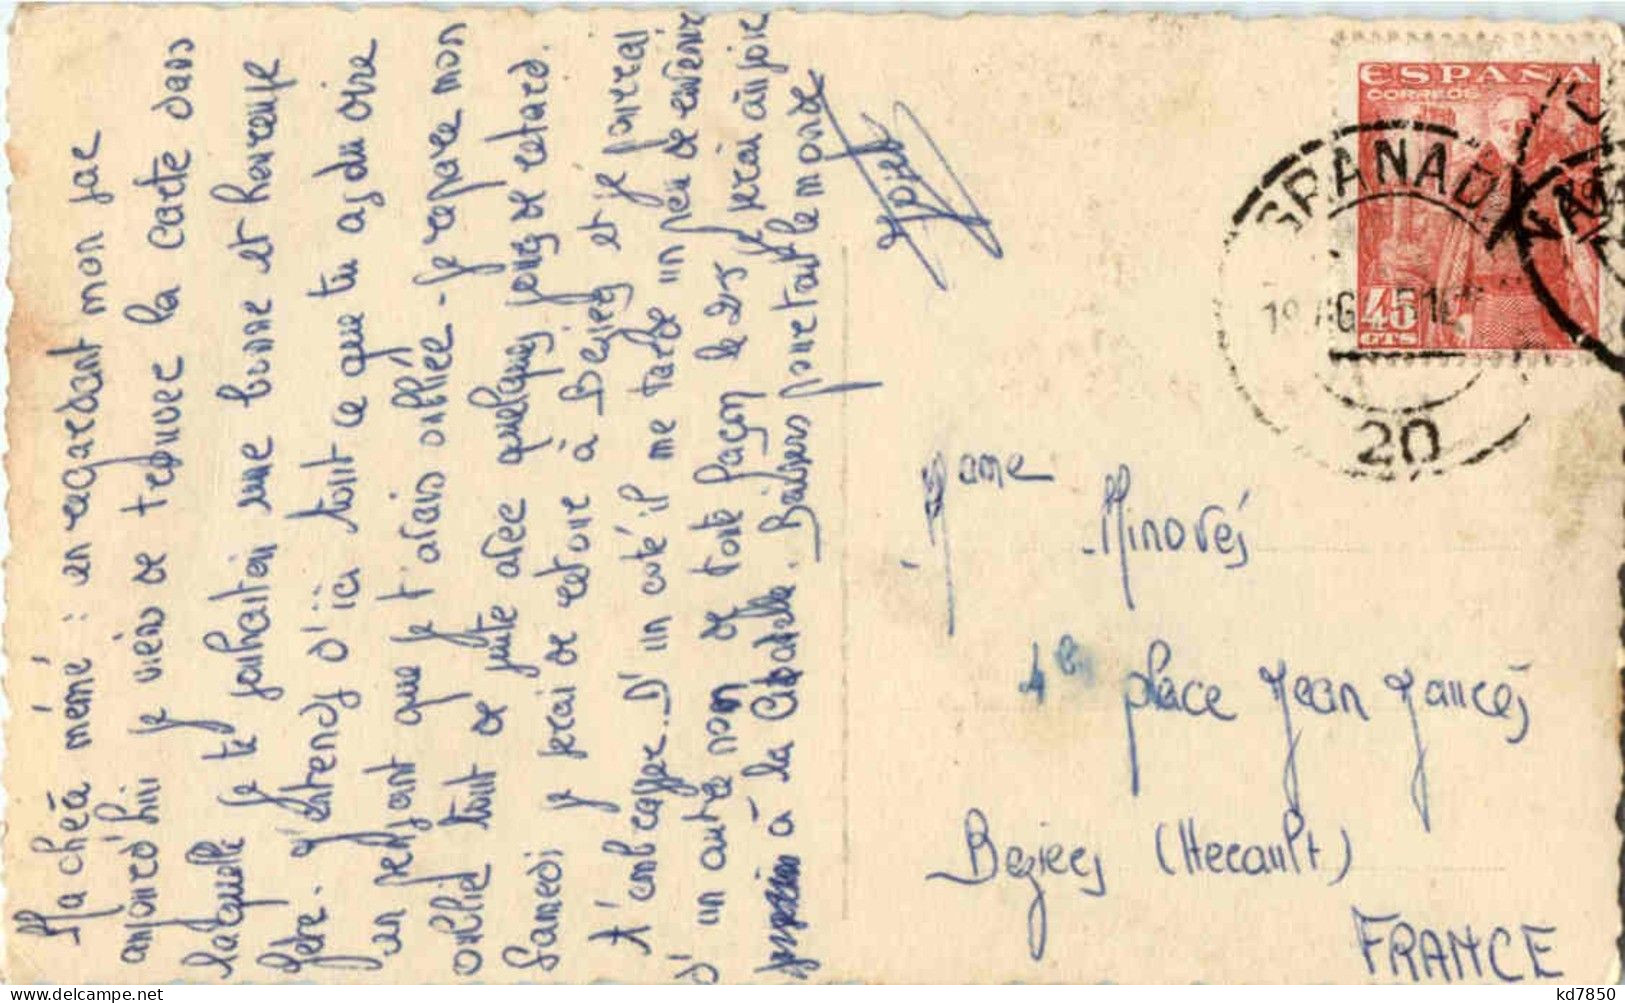 Ma chéà mémé : en regardant mon sac
aujourd'hui je viens de trouver la carte dans
laquelle je te souhaitais une bonne et heureuse
fête. J'entends d'ici tout ce que tu as du dire
en pensant que je t'avais oubliée - je repare mon
oubli tout de suite avec quelques jours de retard.
Samedi je serai de retour à Beziers et je pourrai
t'embrasser. D'un coté il me tarde un peu de revenir
d'un autre non de toute façon le 25 je serai
à la Citadelle. Baisers pour tout le monde
ESPAÑA
CORREOS
45
CTS
GRANADA
20
Mame Minovés
4 place Jean Jaures
Beziers (Herault)
FRANCE
kd7850